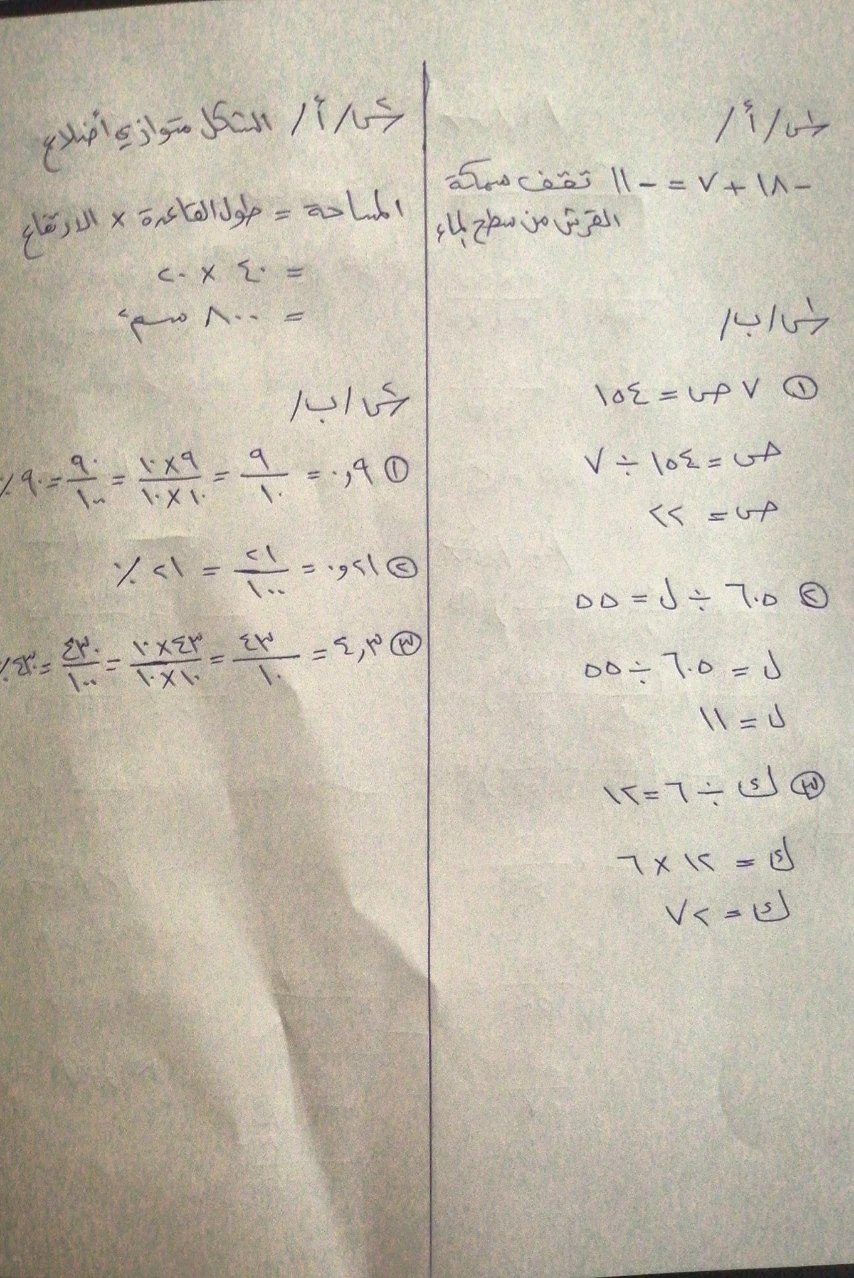 س١/أ/
-١٨ + ٧ = -١١ تقف سمكة
القرش من سطح الماء
س١/ب/
① ٧ ص = ١٥٤
ص = ١٥٤ ÷ ٧
ص = ٢٢
② ٦٠٥ ÷ ل = ٥٥
ل = ٦٠٥ ÷ ٥٥
ل = ١١
③ ك ÷ ٦ = ١٢
ك = ١٢ × ٦
ك = ٧٢
س٢/أ/ الشكل متوازي أضلاع
المساحة = طول القاعدة × الارتفاع
= ٤٠ × ٢٠
= ٨٠٠ سم٢
س٢/ب/
① ٠,٩ = ٩/١٠ = ٩×١٠/١٠×١٠ = ٩٠/١٠٠ = ٩٠٪
② ٠,٢١ = ٢١/١٠٠ = ٢١٪
③ ٤,٣ = ٤٣/١٠ = ٤٣×١٠/١٠×١٠ = ٤٣٠/١٠٠ = ٤٣٠٪